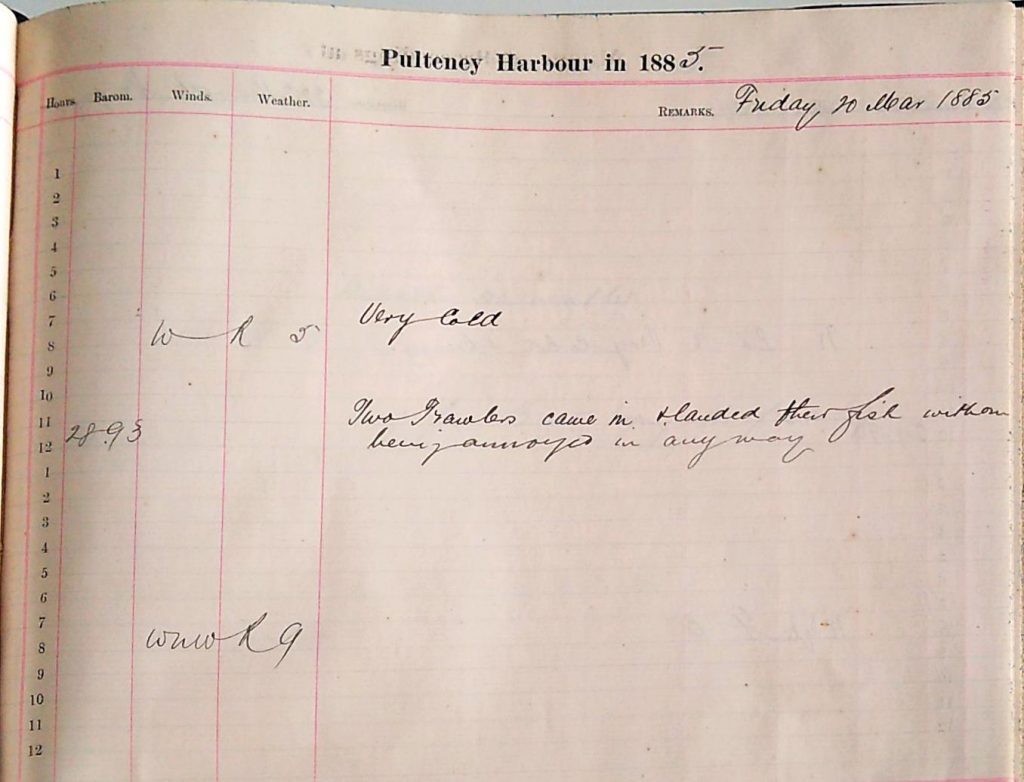 Pulteney Harbour in 1885.
Hours. Barom. Winds. Weather. REMARKS. Friday, 20 Mar 1885
1
2
3
4
5
6
7
8 W R 5 Very Cold
9
10
11 Two Trawlers came in & landed their fish without
12 28.93 being annoyed in any way
1
2
3
4
5
6
7
8 WNW R 9
9
10
11
12